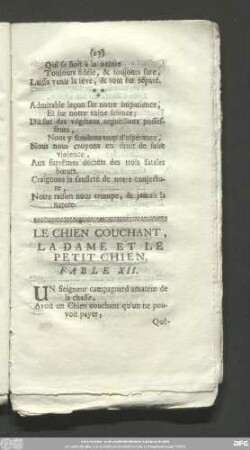 (23)
Qui se fioit à la nature
Toujours fidèle, & toujours sure,
Laissa venir la sève, & tout fut réparé.
* *
Admirable leçon sur notre impatience,
Et sur notre vaine science;
Du suc des végétaux orgueilleux possesseurs,
Nous y fondons trop d'espérance;
Nous nous croyons en droit de faire
violence,
Aux suprêmes décrets des trois fatales
sœurs.
Craignons la fausseté de notre conjectu-
re,
Notre raison nous trompe, & jamais la
nature.
LE CHIEN COUCHANT,
LA DAME ET LE
PETIT CHIEN,
FABLE XII.
UN Seigneur campagnard amateur de
la chasse,
Avoit un Chien couchant qu'on ne pou-
voit payer,
Qué-